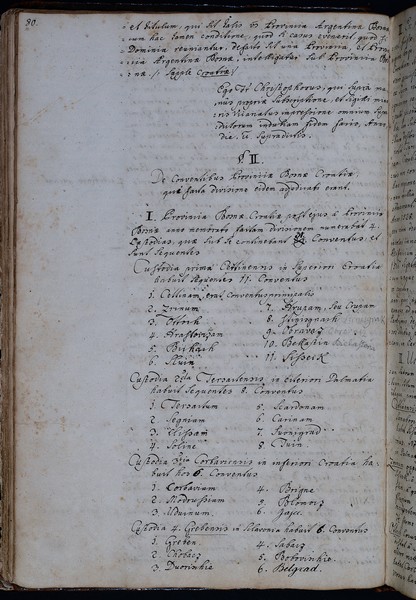 80.
et titulum, qui sit talis Provincia Argentina Bosnæ
cum hac tamen conditione, quod si casus evenerit, quod
Dominia reuniantur, de facto sit una Provincia, et Provin-
cia Argentina Bosnæ, intelligatur sub Provincia Bos-
næ // Supple Croatiæ
Ego Fr Christophorus, qui supra ma-
nus propriæ subscriptione, et sigilli
impressione omnium supra-
dictorum indubiam fidem facio, Anno,
Die, ut supradictis.
§ II
De Conventibus Provinciæ Bosnæ Croatiæ,
quæ facta divisione eidem adjudicati erant.
I. Provincia Bosnæ Croatiæ post ejus a Provincia
Bosnæ memoratam factam divisionem numerabat 4.
Custodias, quæ sub se continebant Conventus, et
sunt sequentes
Custodia prima Cetinensis in superiori Croatia
habuit sequentes 11. Conventus
1. Cetinam, erat Conventus principalis
2. Zrinum
3. Ottoch
4. Krastovizam
5. Bihach
6. Sluin
7. Hruzam, seu Cruzam
8. Stignignach
9. Obravez
10. Belkastin
11. Sisseck
Custodia 2da Tersactensis in exteriori Dalmatia
habuit sequentes 8. Conventus
1. Tersactum
2. Segniam
3. Clissam
4. Soline
5. Scardonam
6. Carinam
7. Furnigrad
8. Tnin
Custodia 3tia Corbaviensis in inferiori Croatia ha-
buit hos 6. Conventus
1. Corbaviam
2. Modrussiam
3. Udvinum
4. Brigne
5. Ostonoz
6. Gasce.
Custodia 4. Grebensis in Sclavonia habuit 6. Conventus
1. Greben
2. Thobacz
3. Dvorishie
4. Sabacz
5. Botovishie
6. Belgrad.